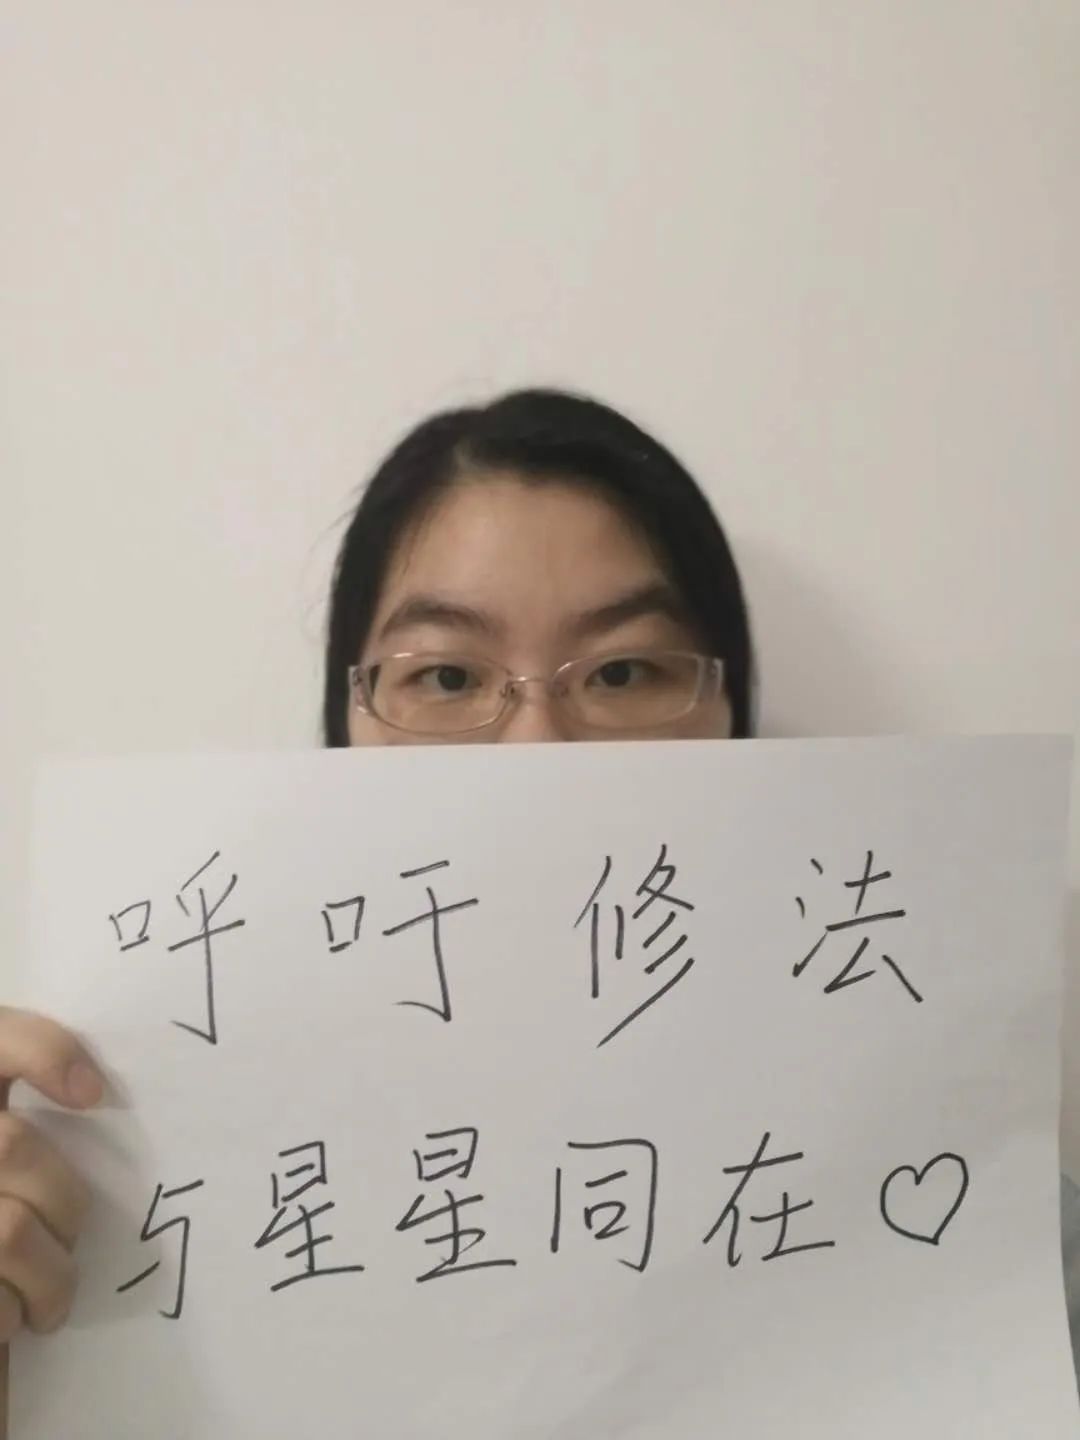 呼吁修法
与星星同在♡